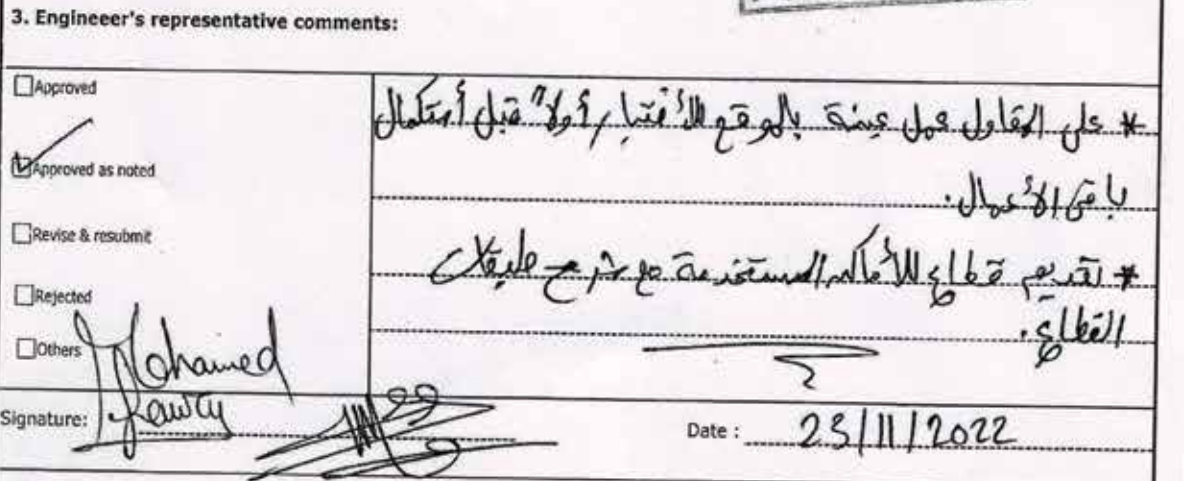 3. Engineeer's representative comments:
Approved
Approved as noted
Revise & resubmit
Rejected
Others
* على المقاول عمل عينة بالموقع للأختبار أولاً قبل أستكمال
باقى الأعمال.
* تقديم قطاع للأماكن المستخدمة مع شرح طبقات
القطاع.
Mohamed
Fawzy
Signature:
Date : 23/11/2022